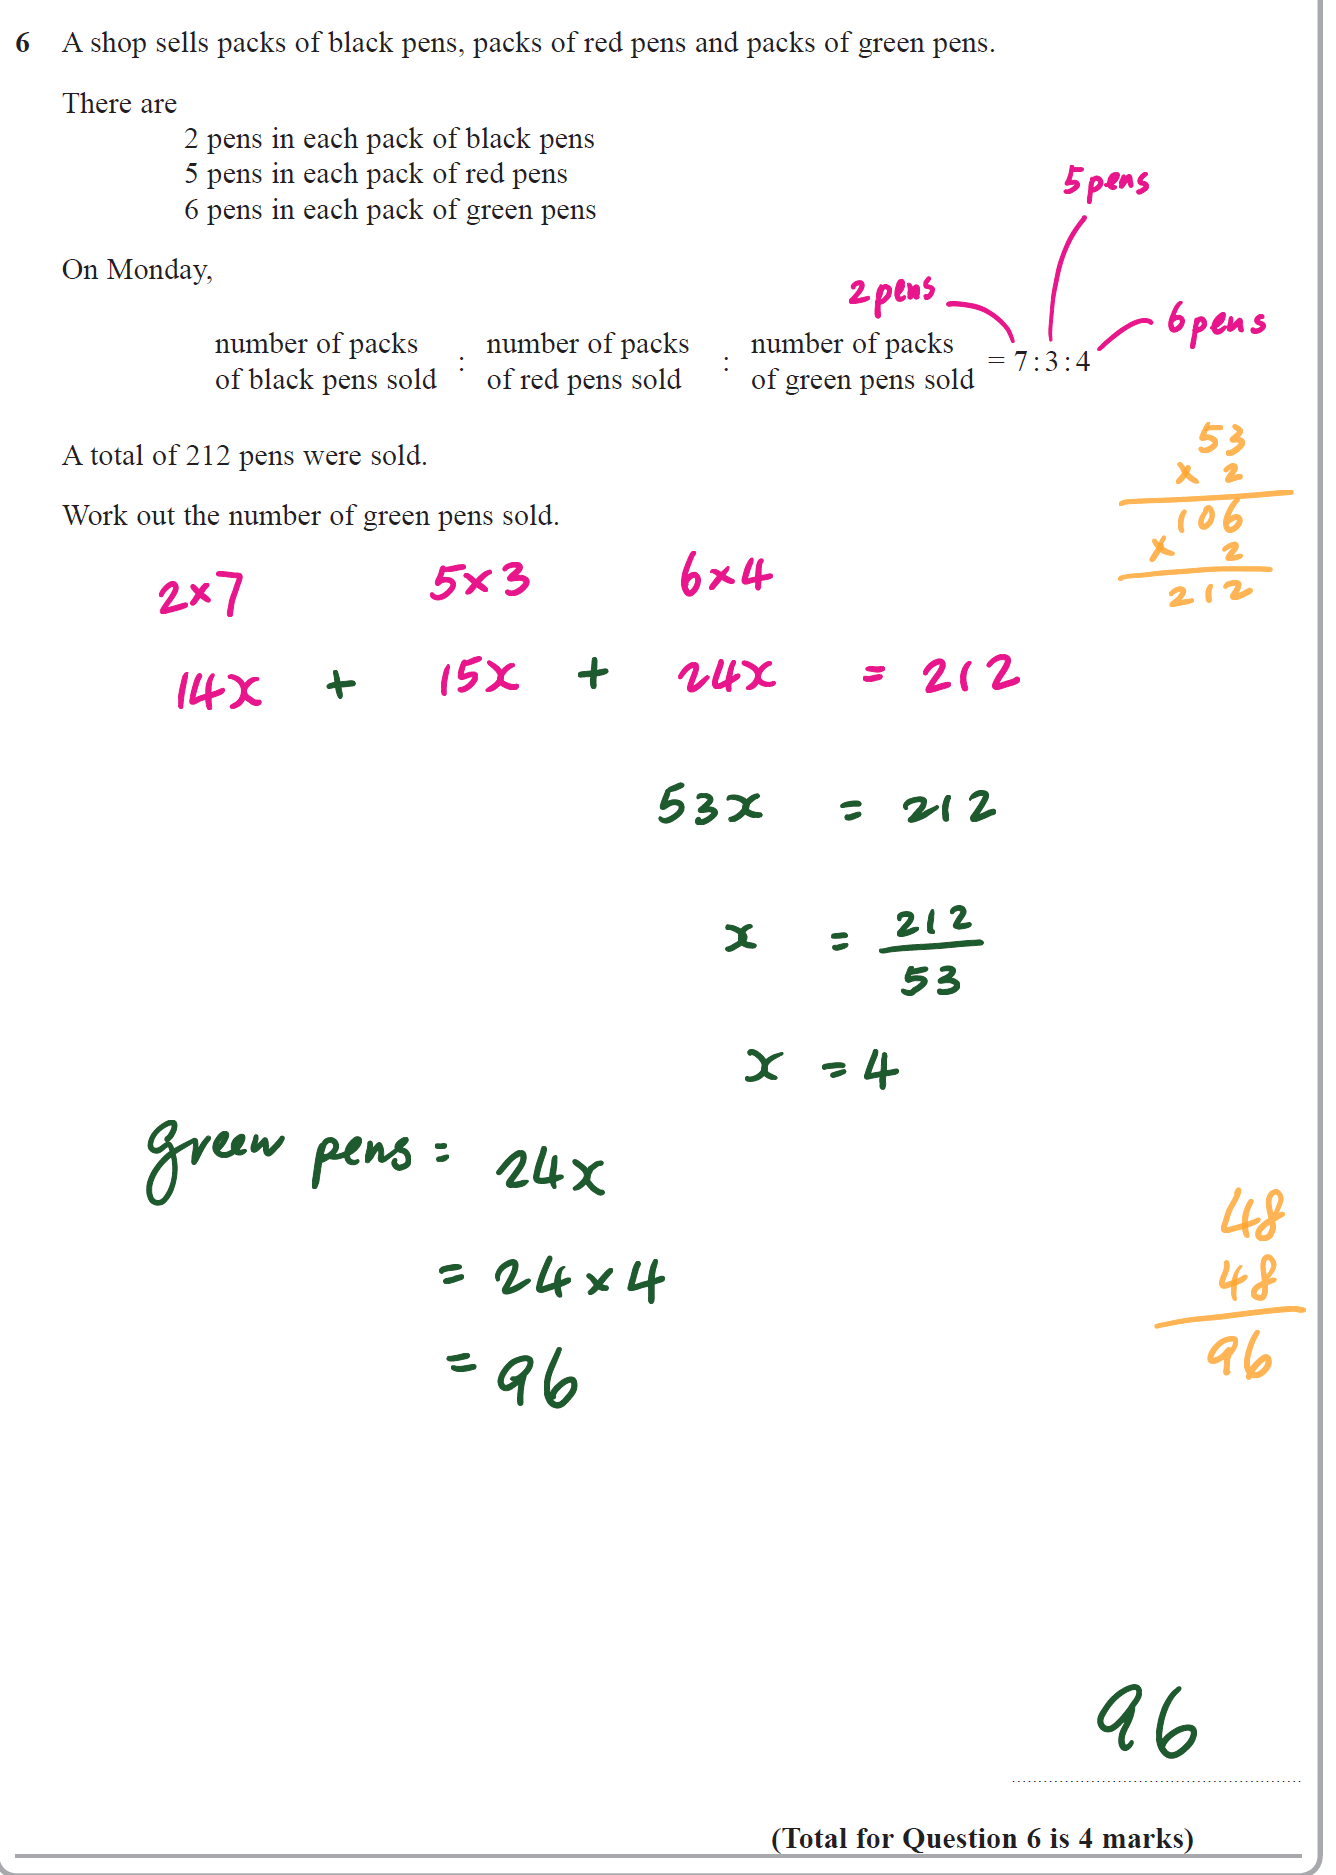 6 A shop sells packs of black pens, packs of red pens and packs of green pens.
There are
2 pens in each pack of black pens
5 pens in each pack of red pens
6 pens in each pack of green pens
5 pens
On Monday,
2 pens
6 pens
number of packs of black pens sold : number of packs of red pens sold : number of packs of green pens sold = 7 : 3 : 4
A total of 212 pens were sold.
53
× 2
106
× 2
212
Work out the number of green pens sold.
2×7 5×3 6×4
14x + 15x + 24x = 212
53x = 212
x = 212/53
x = 4
green pens = 24x
= 24×4
= 96
48
48
96
96
(Total for Question 6 is 4 marks)